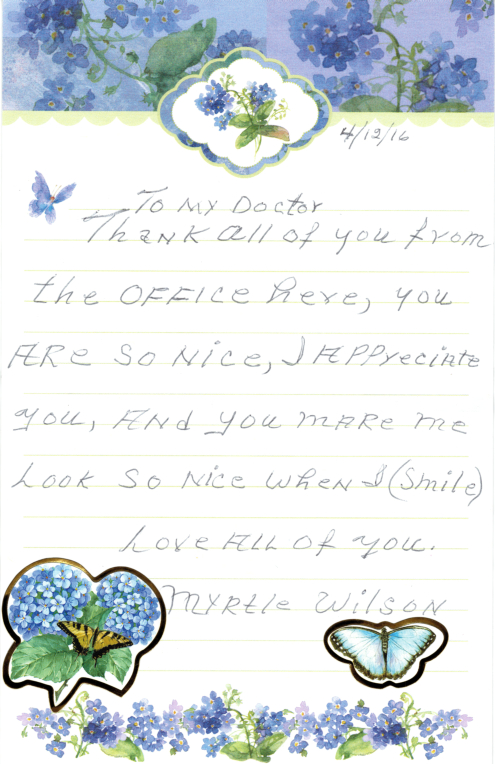 4/12/16
To My Doctor
Thank all of you from
the OFFICE here, you
ARe so Nice, I APPreciate
you, ANd you make me
Look so Nice when I (Smile)
Love ALL of you.
MyRtle Wilson